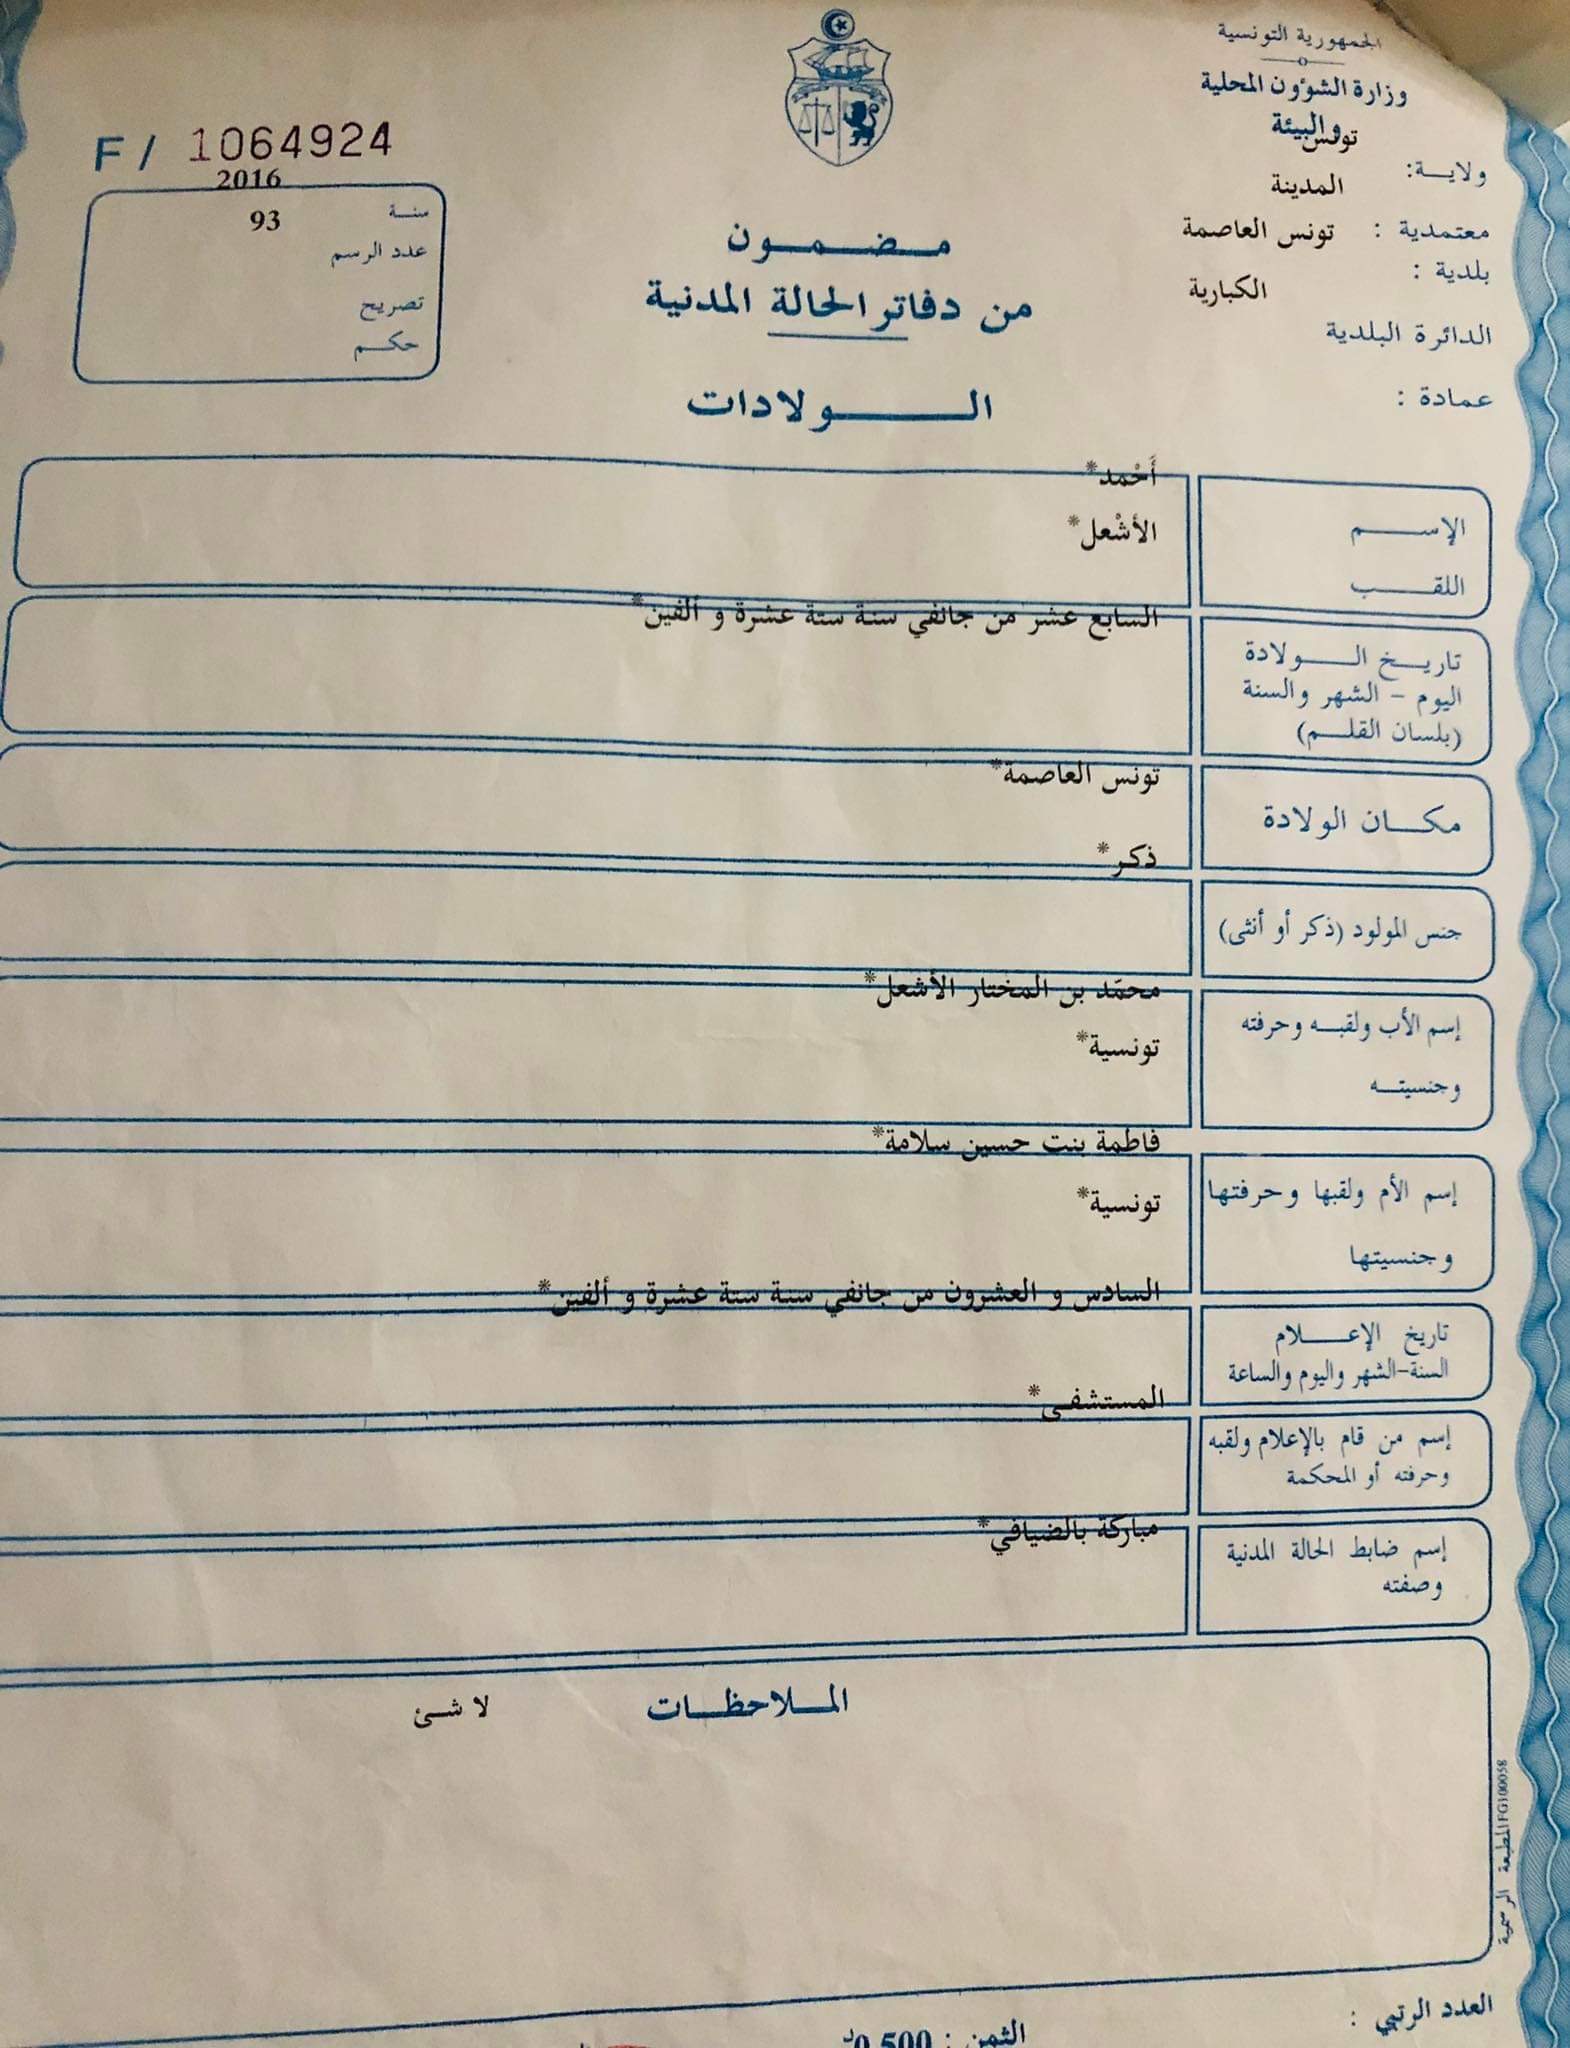 الجمهورية التونسية
وزارة الشؤون المحلية
والبيئة
ولاية: تونس
معتمدية : المدينة
بلدية : تونس العاصمة
الدائرة البلدية الكبارية
عمادة :
F / 1064924
سنة 2016
عدد الرسم 93
تصريح
حكم
مضمون
من دفاتر الحالة المدنية
الولادات
الإسم أَحْمد*
اللقب الأشْعل*
تاريخ الولادة السابع عشر من جانفي سنة ستة عشرة و ألفين*
اليوم - الشهر والسنة
(بلسان القلم)
مكان الولادة تونس العاصمة*
جنس المولود (ذكر أو أنثى) ذكر*
إسم الأب ولقبه وحرفته محمّد بن المختار الأشعل*
وجنسيته تونسية*
إسم الأم ولقبها وحرفتها فاطمة بنت حسين سلامة*
وجنسيتها تونسية*
تاريخ الإعلام السادس و العشرون من جانفي سنة ستة عشرة و ألفين*
السنة-الشهر واليوم والساعة
إسم من قام بالإعلام ولقبه المستشفى*
وحرفته أو المحكمة
إسم ضابط الحالة المدنية مباركة بالضيافي*
وصفته
الملاحظات لا شئ
المطبعة الرسمية FG100058
العدد الرتبي :
الثمن : 0,500د